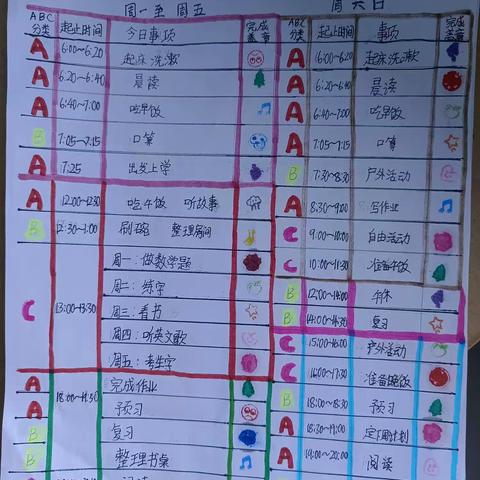 周一至周五
ABC分类 起止时间 今日事项 完成盖章
A 6:00~6:20 起床洗漱
A 6:20~6:40 晨读
A 6:40~7:00 吃早饭
B 7:05~7:15 口算
A 7:25 出发上学
A 12:00~12:30 吃午饭 听故事
B 12:30~1:00 刷碗 整理房间
C 13:00~13:30 周一:做数学题
周二:练字
周三:看书
周四:听英文歌
周五:考生字
A 完成作业
A 预习
B 复习
B 整理书桌
周六日
ABC分类 起止时间 事项 完成盖章
A 6:00~6:20 起床洗漱
A 6:20~6:40 晨读
A 6:40~7:00 吃早饭
A 7:05~7:15 口算
B 7:30~8:30 户外活动
A 8:30~9:00 写作业
C 9:00~10:00 自由活动
C 10:00~11:30 准备午饭
B 12:00~14:00 午休
B 14:00~14:30 复习
C 15:00~16:00 户外活动
C 16:00~17:30 准备晚饭
B 18:00~18:30 预习
A 18:30~19:00 定周计划
A 19:00~20:00 阅读